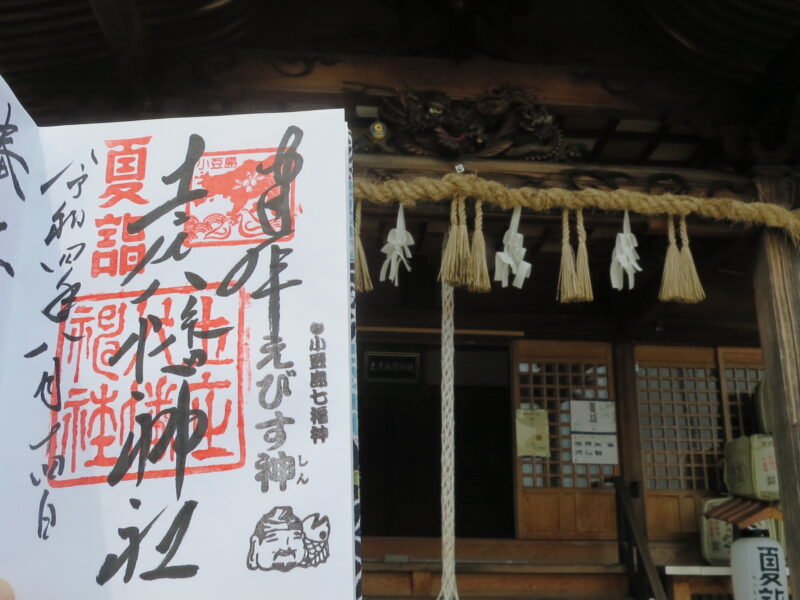 奉拝
小豆島
夏詣
土庄八幡神社
土庄八幡神社
令和四年八月十四日
小豆島七福神
えびす神
しん
土庄八幡神社
夏詣